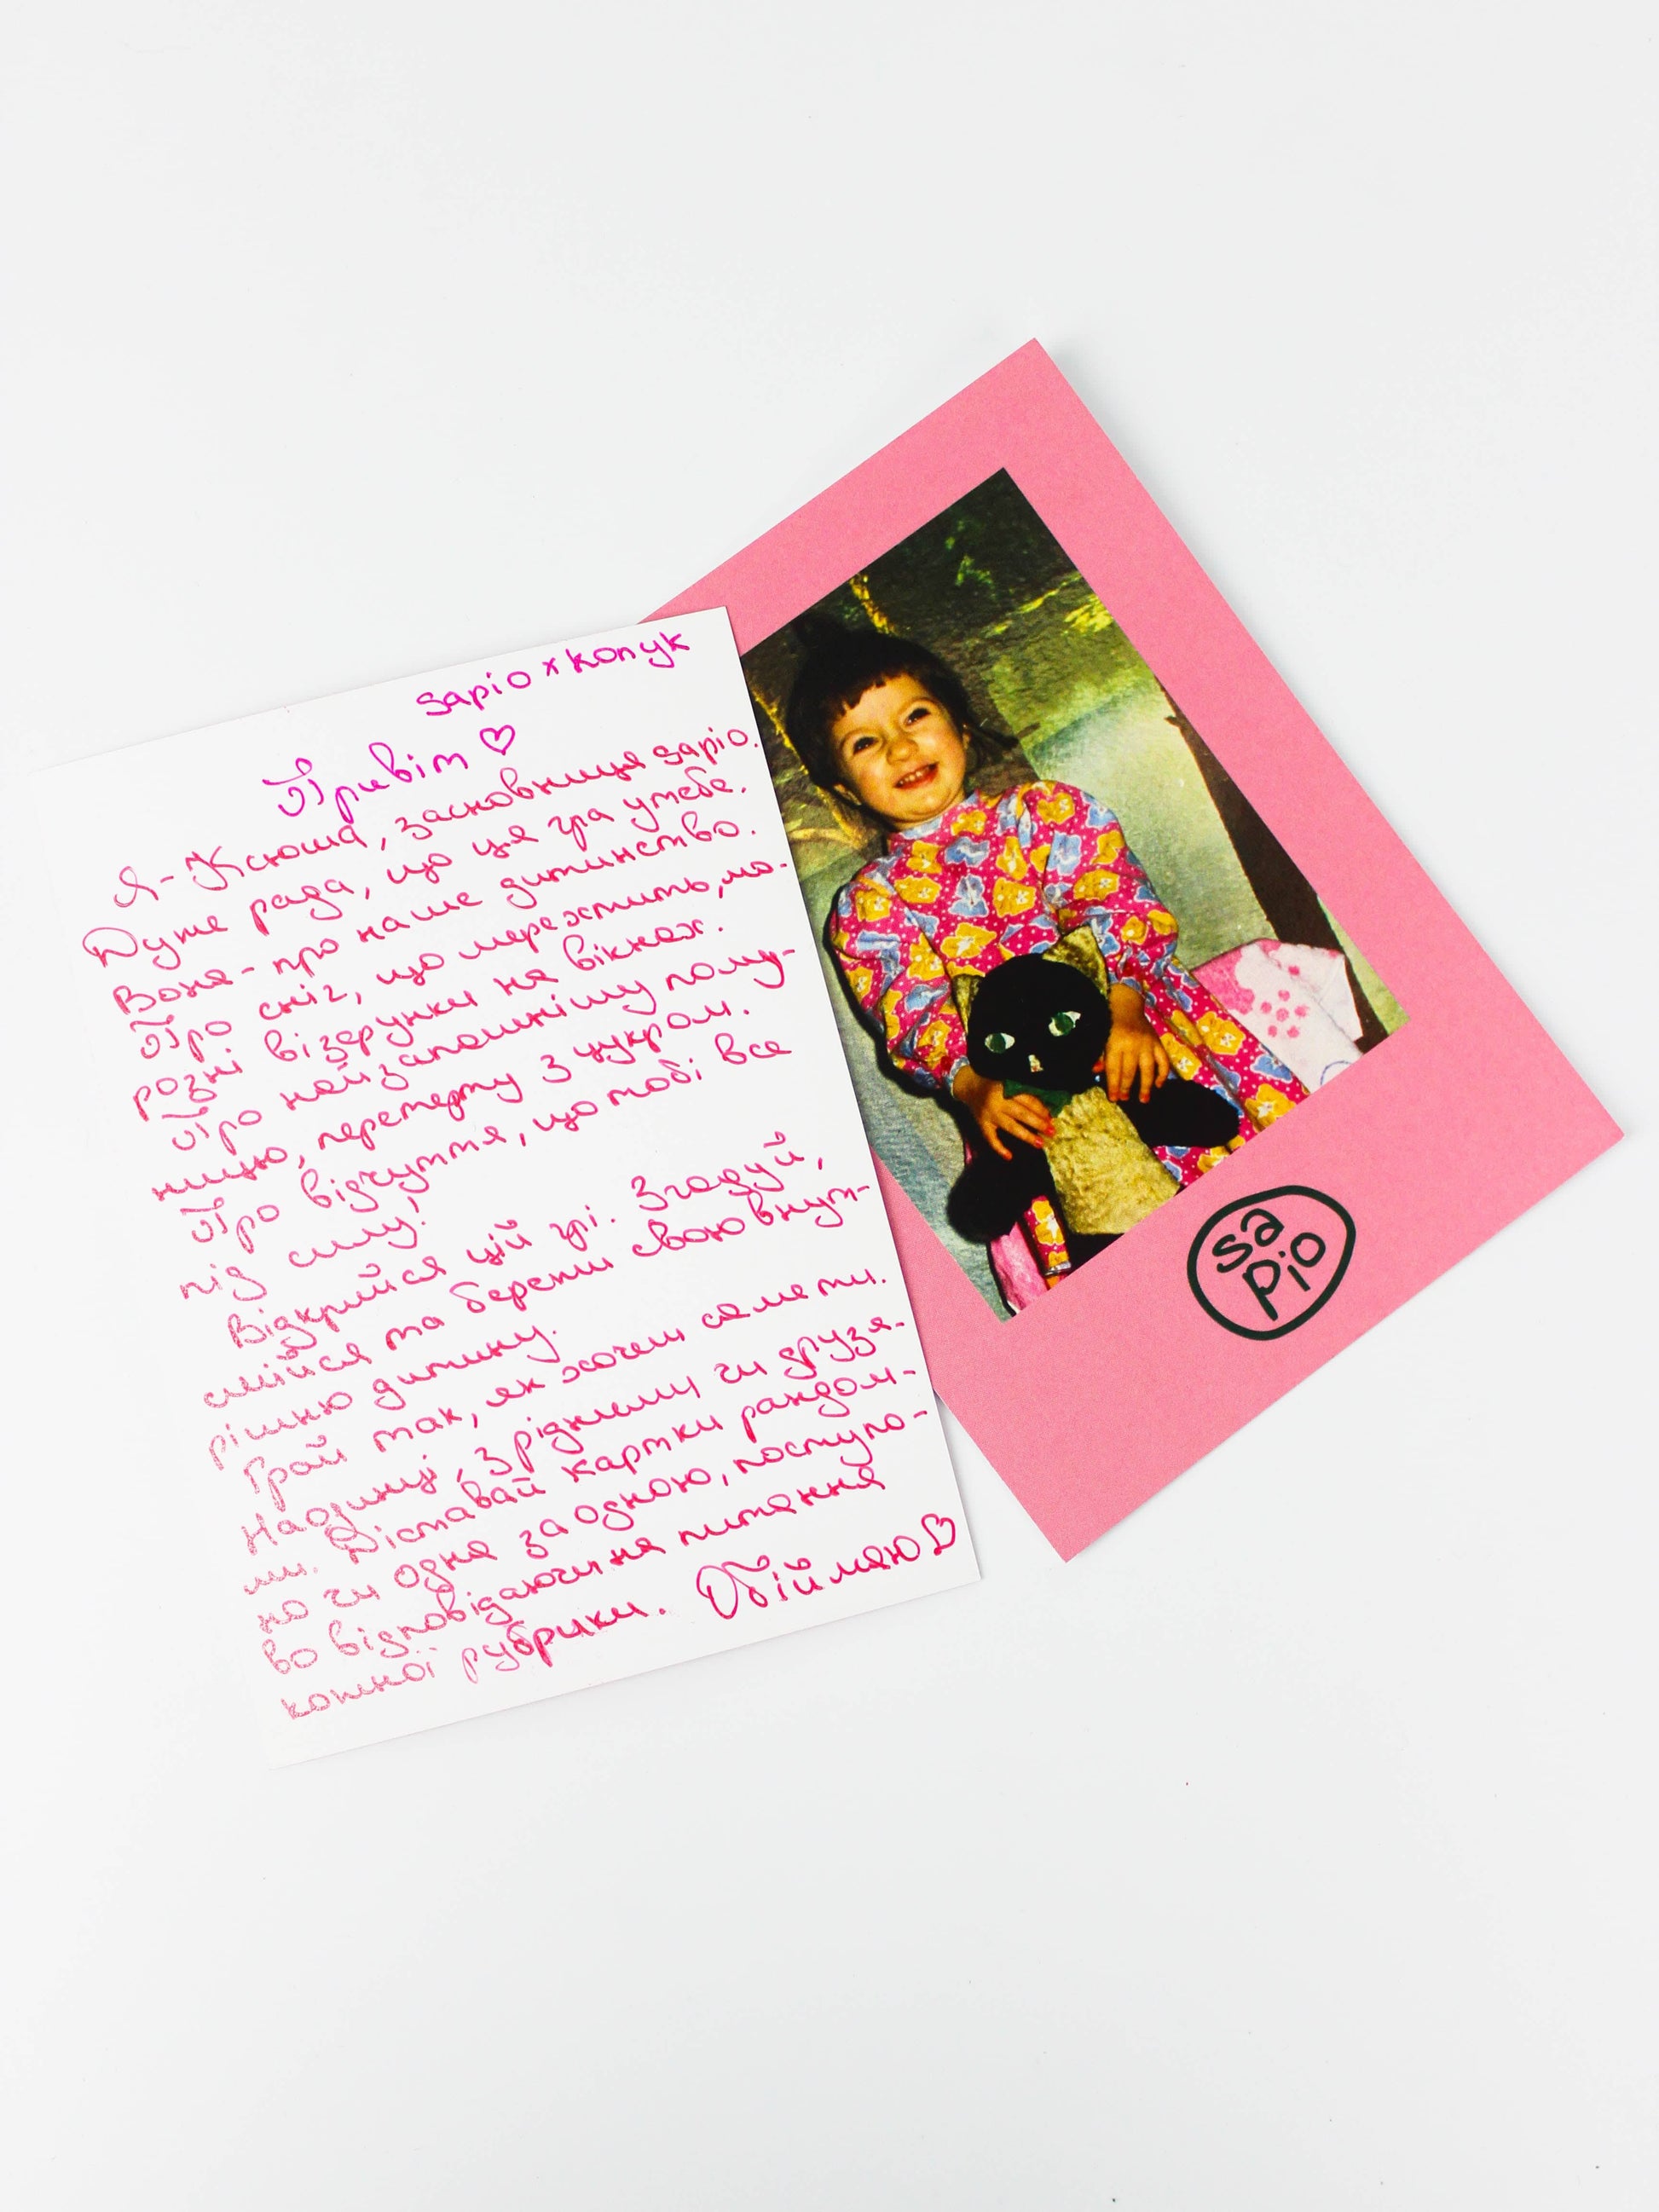 sapio x копук
Привіт ♡
Я - Ксюша, засновниця sapio.
Дуже рада, що ця гра у тебе.
Вона - про наше дитинство.
Про сніг, що мерехтить, мо-
розні візерунки на вікнах.
Про найзапашнішу полу-
ницю, перетерту з цукром.
Про відчуття, що тобі все
під силу!
Відкрийся цій грі. Згадуй,
смійся та бережи свою внут-
рішню дитину.
Грай так, як хочеш саме ти.
Наодинці, з рідними чи друзя-
ми. Діставай картки рандом-
но чи одна за одною, поступо-
во відповідаючи на питання
кожної рубрики. Обіймаю ♡
sa
pio